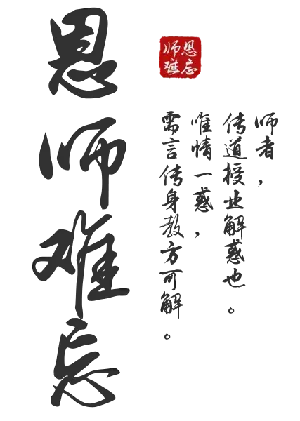 恩师难忘
恩师难忘
师者，
传道授业解惑也。
唯情一惑，
需言传身教方可解。